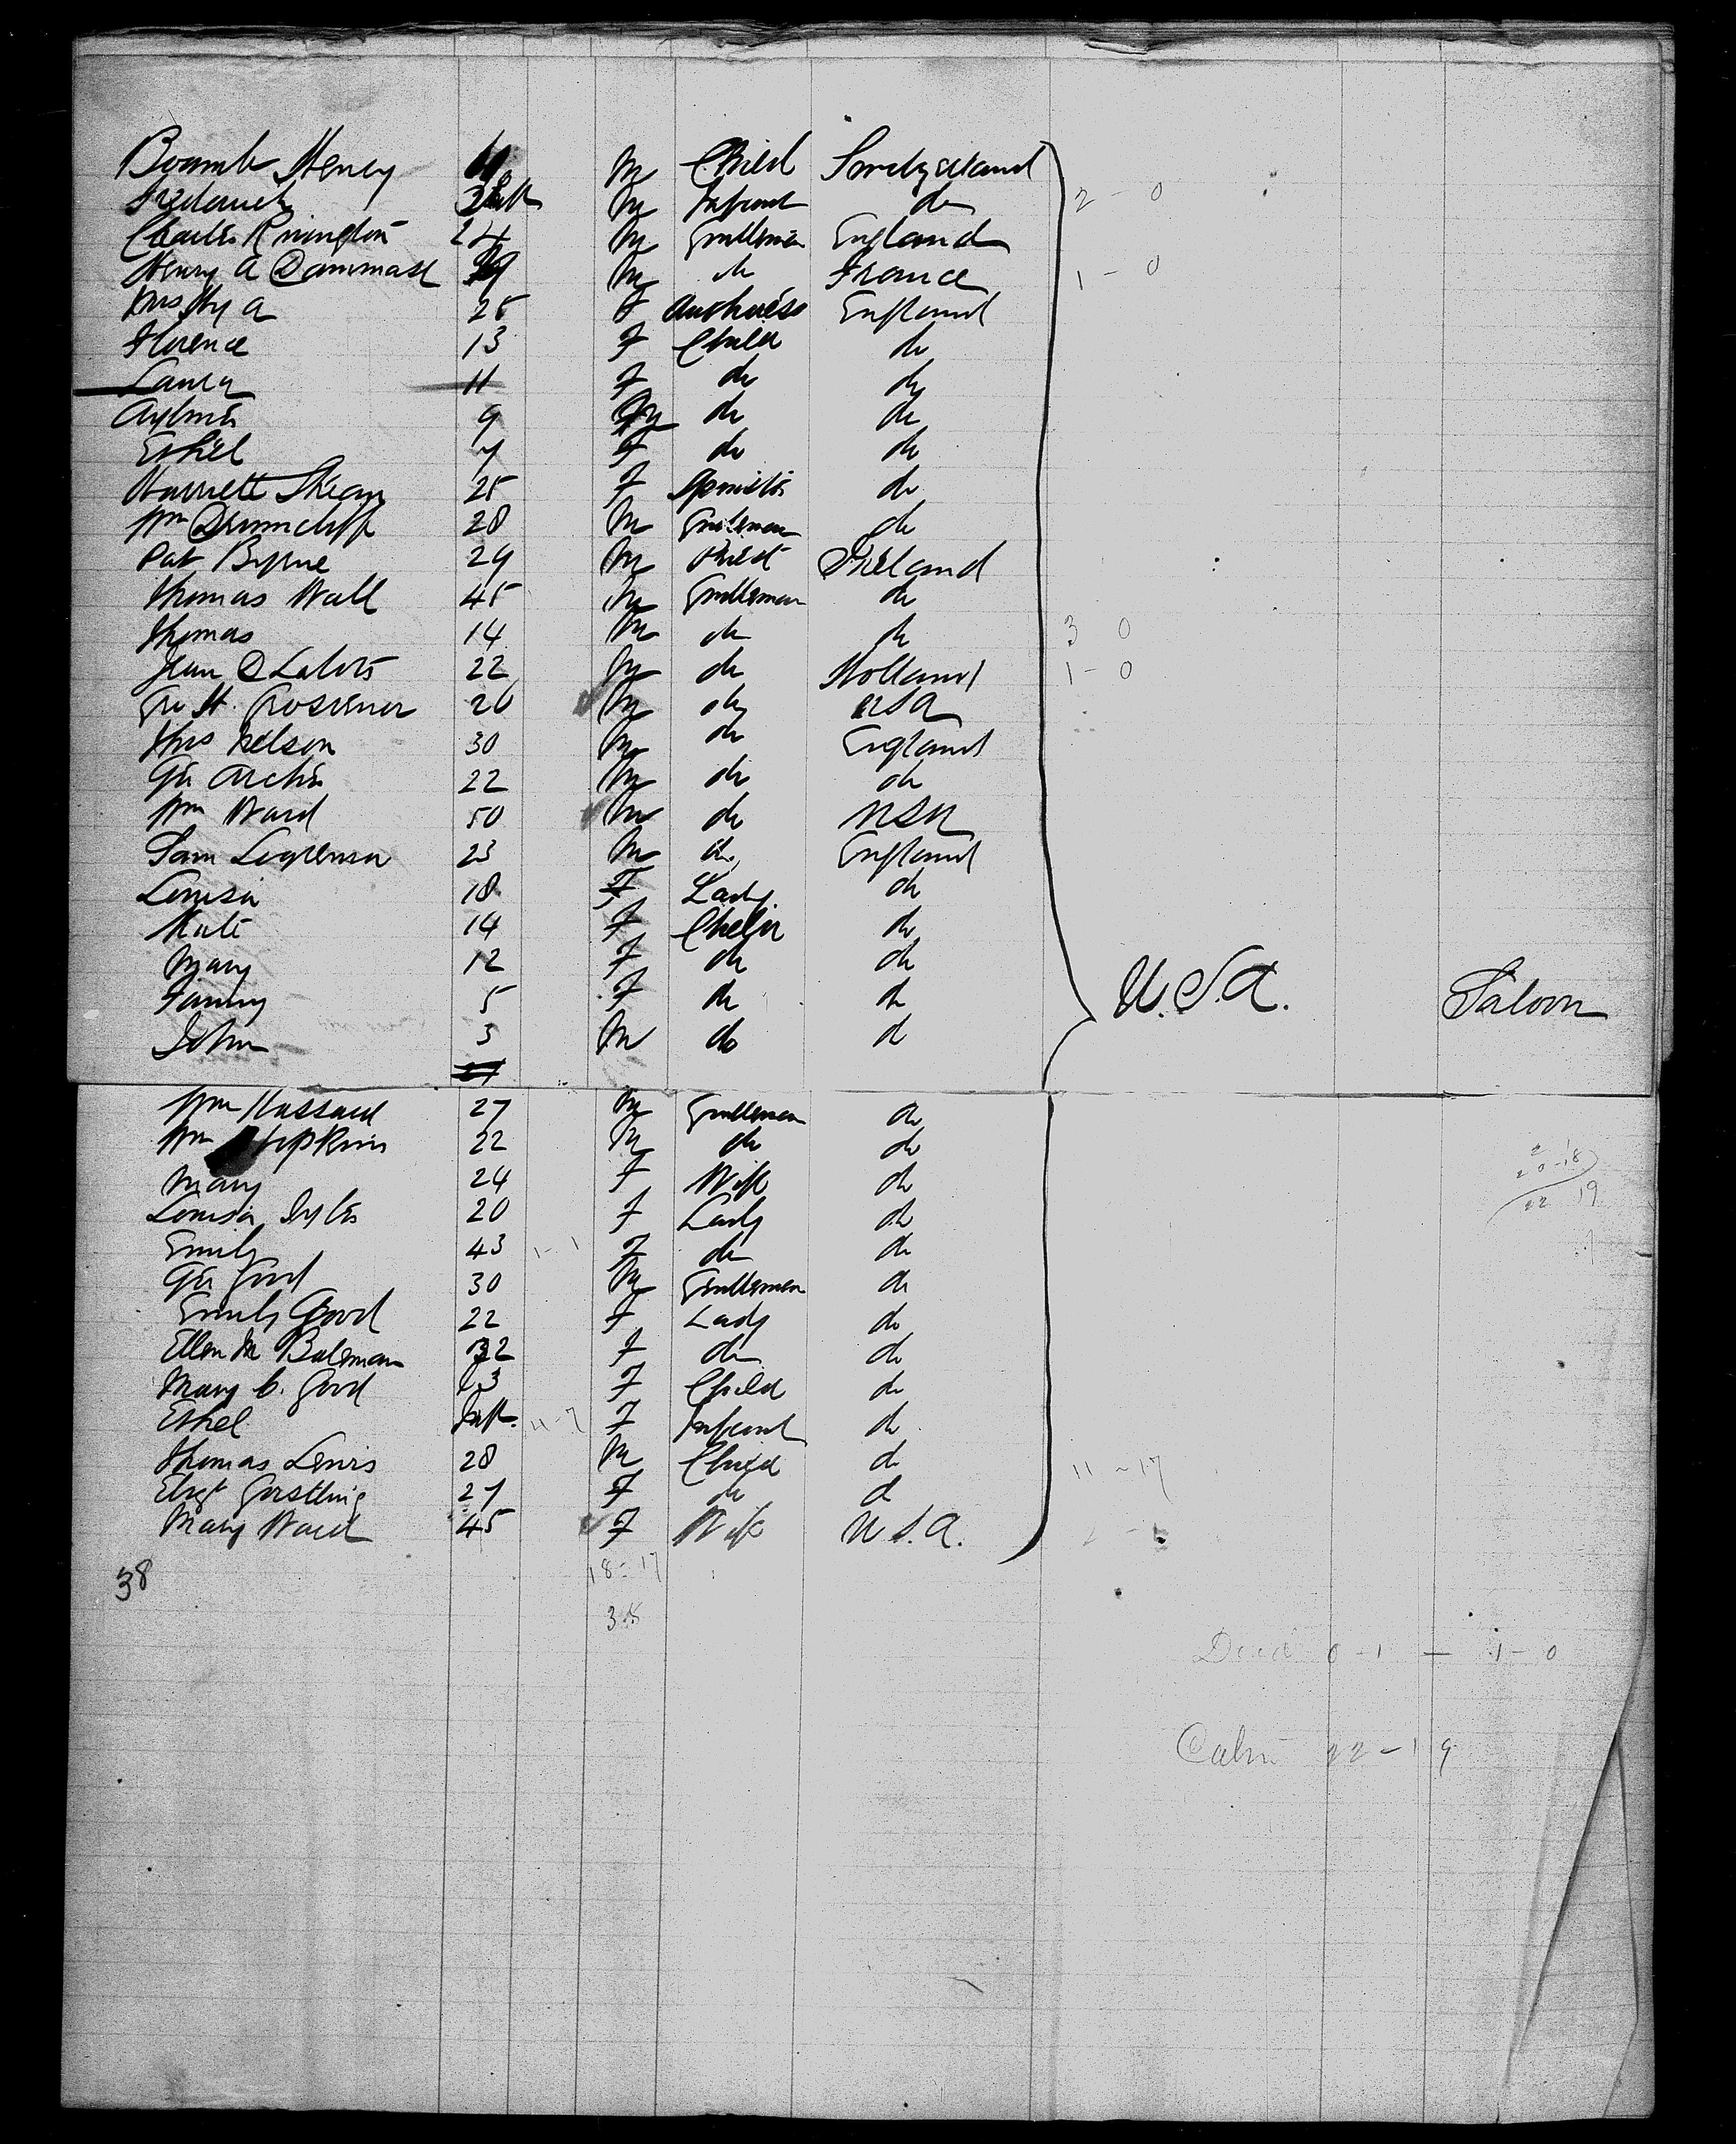 Henry M Child
Frederick M Infant do
Charles Rivington 24 M Gentleman England
Henry A Dammase M do France
Mrs Hy A 25 F England
Florence 13 F Child do
Laura 11 F do do
Aylmer 9 M do do
Ethel 7 F do do
Harriett 25 F Spinster do
Wm 28 M Gentleman do
Pat Byrne 29 M Priest Ireland
Thomas Wall 45 M Gentleman do
Thomas 14 M do do 3 0
Jean D 22 M do Holland 1 - 0
Geo H. Grosvenor 26 M do USA
Thos Nelson 30 M do England
Geo Archer 22 M do do
Wm Ward 50 M do USA
Sam 23 M do England
Louisa 18 F Lady do
Kate 14 F Child do
Mary 12 F do do
Fanny 5 F do do U.S.A. Saloon
John 3 M do do
Wm Hassard 27 M Gentleman do
Wm Hopkins 22 M do do
Mary 24 F Wife do
Louisa 20 F Lady do
Emily 43 1-1 F do do
Geo Good 30 M Gentleman do
Emily Good 22 F Lady do
Ellen M Bateman 32 F do do
Mary C. Good 3 F Child do
Ethel Inft. 11-7 F Infant do
Thomas Lewis 28 M do 11-17
Elizt Gostling 27 F do do
Mary Ward 45 F Wife U.S.A.
38
18-17
Died 0-1 - 1-0
Cabin 22-19